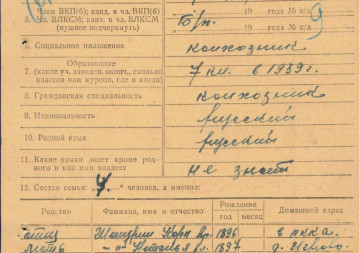 Член ВКП(б); канд. в чл. ВКП(б)
чл. ВЛКСМ; канд. в чл. ВЛКСМ
(нужное подчеркнуть)
Б/п.
19 года № п/б.
19 года № ч/б.
9
6. Социальное положение колхозник
Образование
7. (какое уч. заведен. оконч., сколько классов или курсов, где и когда)
7 кл. в 1939 г.
8. Гражданская специальность колхозник
9. Национальность русский
10. Родной язык русский
11. Какие языки знает кроме родного и как ими владеет
не знает
12. Состав семьи: „4“ человек, а именно:
Родство Фамилия, имя и отчество Рождение Домашний адрес
год месяц
отец 1896
мать —"— 1897 д.